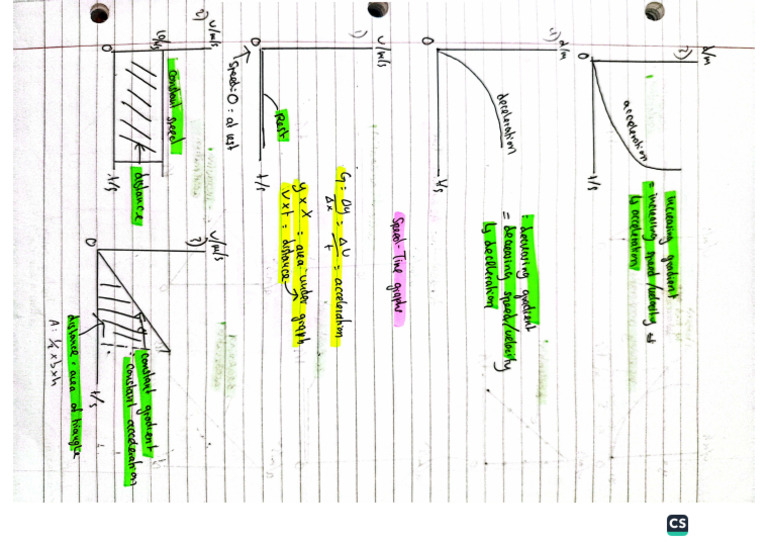 3)
d/m
acceleration
0
t/s
increasing gradient
= increasing speed/velocity
↳ acceleration
4)
d/m
deceleration
0
t/s
: decreasing gradient
= decreasing speed/velocity
↳ decelleration
Speed-Time graphs
1)
v/m/s
Rest
0
t/s
Speed=0 : at rest
G = Δy/Δx = Δv/t = acceleration
y × x = area under graph
v×t = distance
2)
v/m/s
10m/s
constant speed
0
t/s
distance
3)
v/m/s
0
t/s
constant gradient
: constant acceleration
distance = area of triangle
A = ½ × b × h
CS